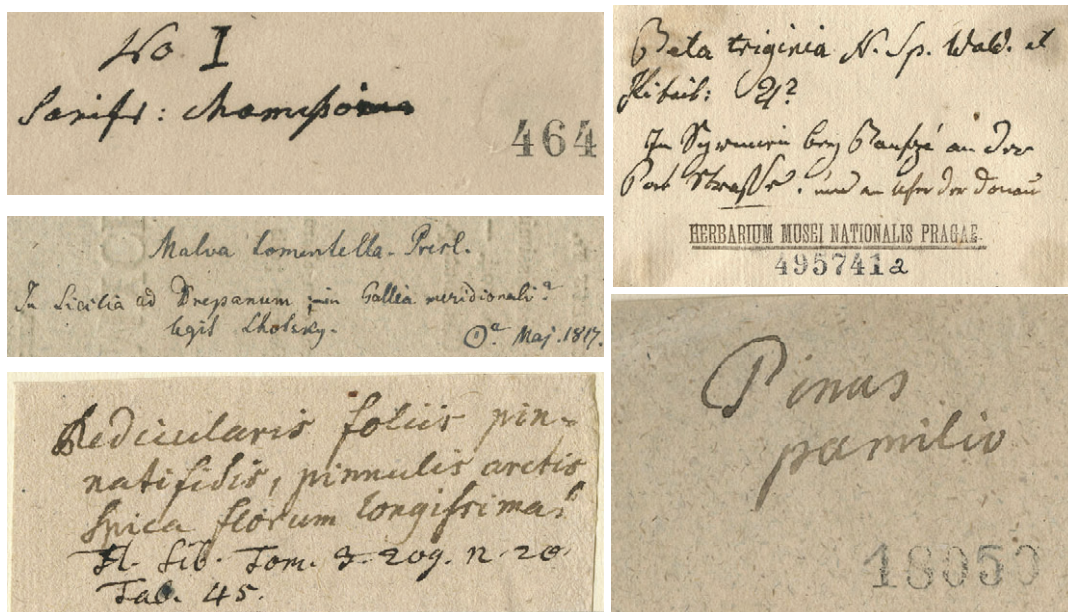 No I
Saxifr: Chamisoins
464
Malva tomentella. Presl.
In Sicilia ad Drepanum, in Gallia meridionali?
legit Lhotsky.
Maj. 1817.
Pedicularis foliis pin=
natifidis, pinnulis arctis
spica florum longissima.
Fl. Sib. Tom. 3. 209. n. 20
Tab. 45.
Beta triginia N. Sp. Wald. et
Kitaib: ♃?
In Syrmien bey an der
Post Strasse. und am Ufer der Donau
HERBARIUM MUSEI NATIONALIS PRAGAE.
495741a
Pinus
pamilio
18050